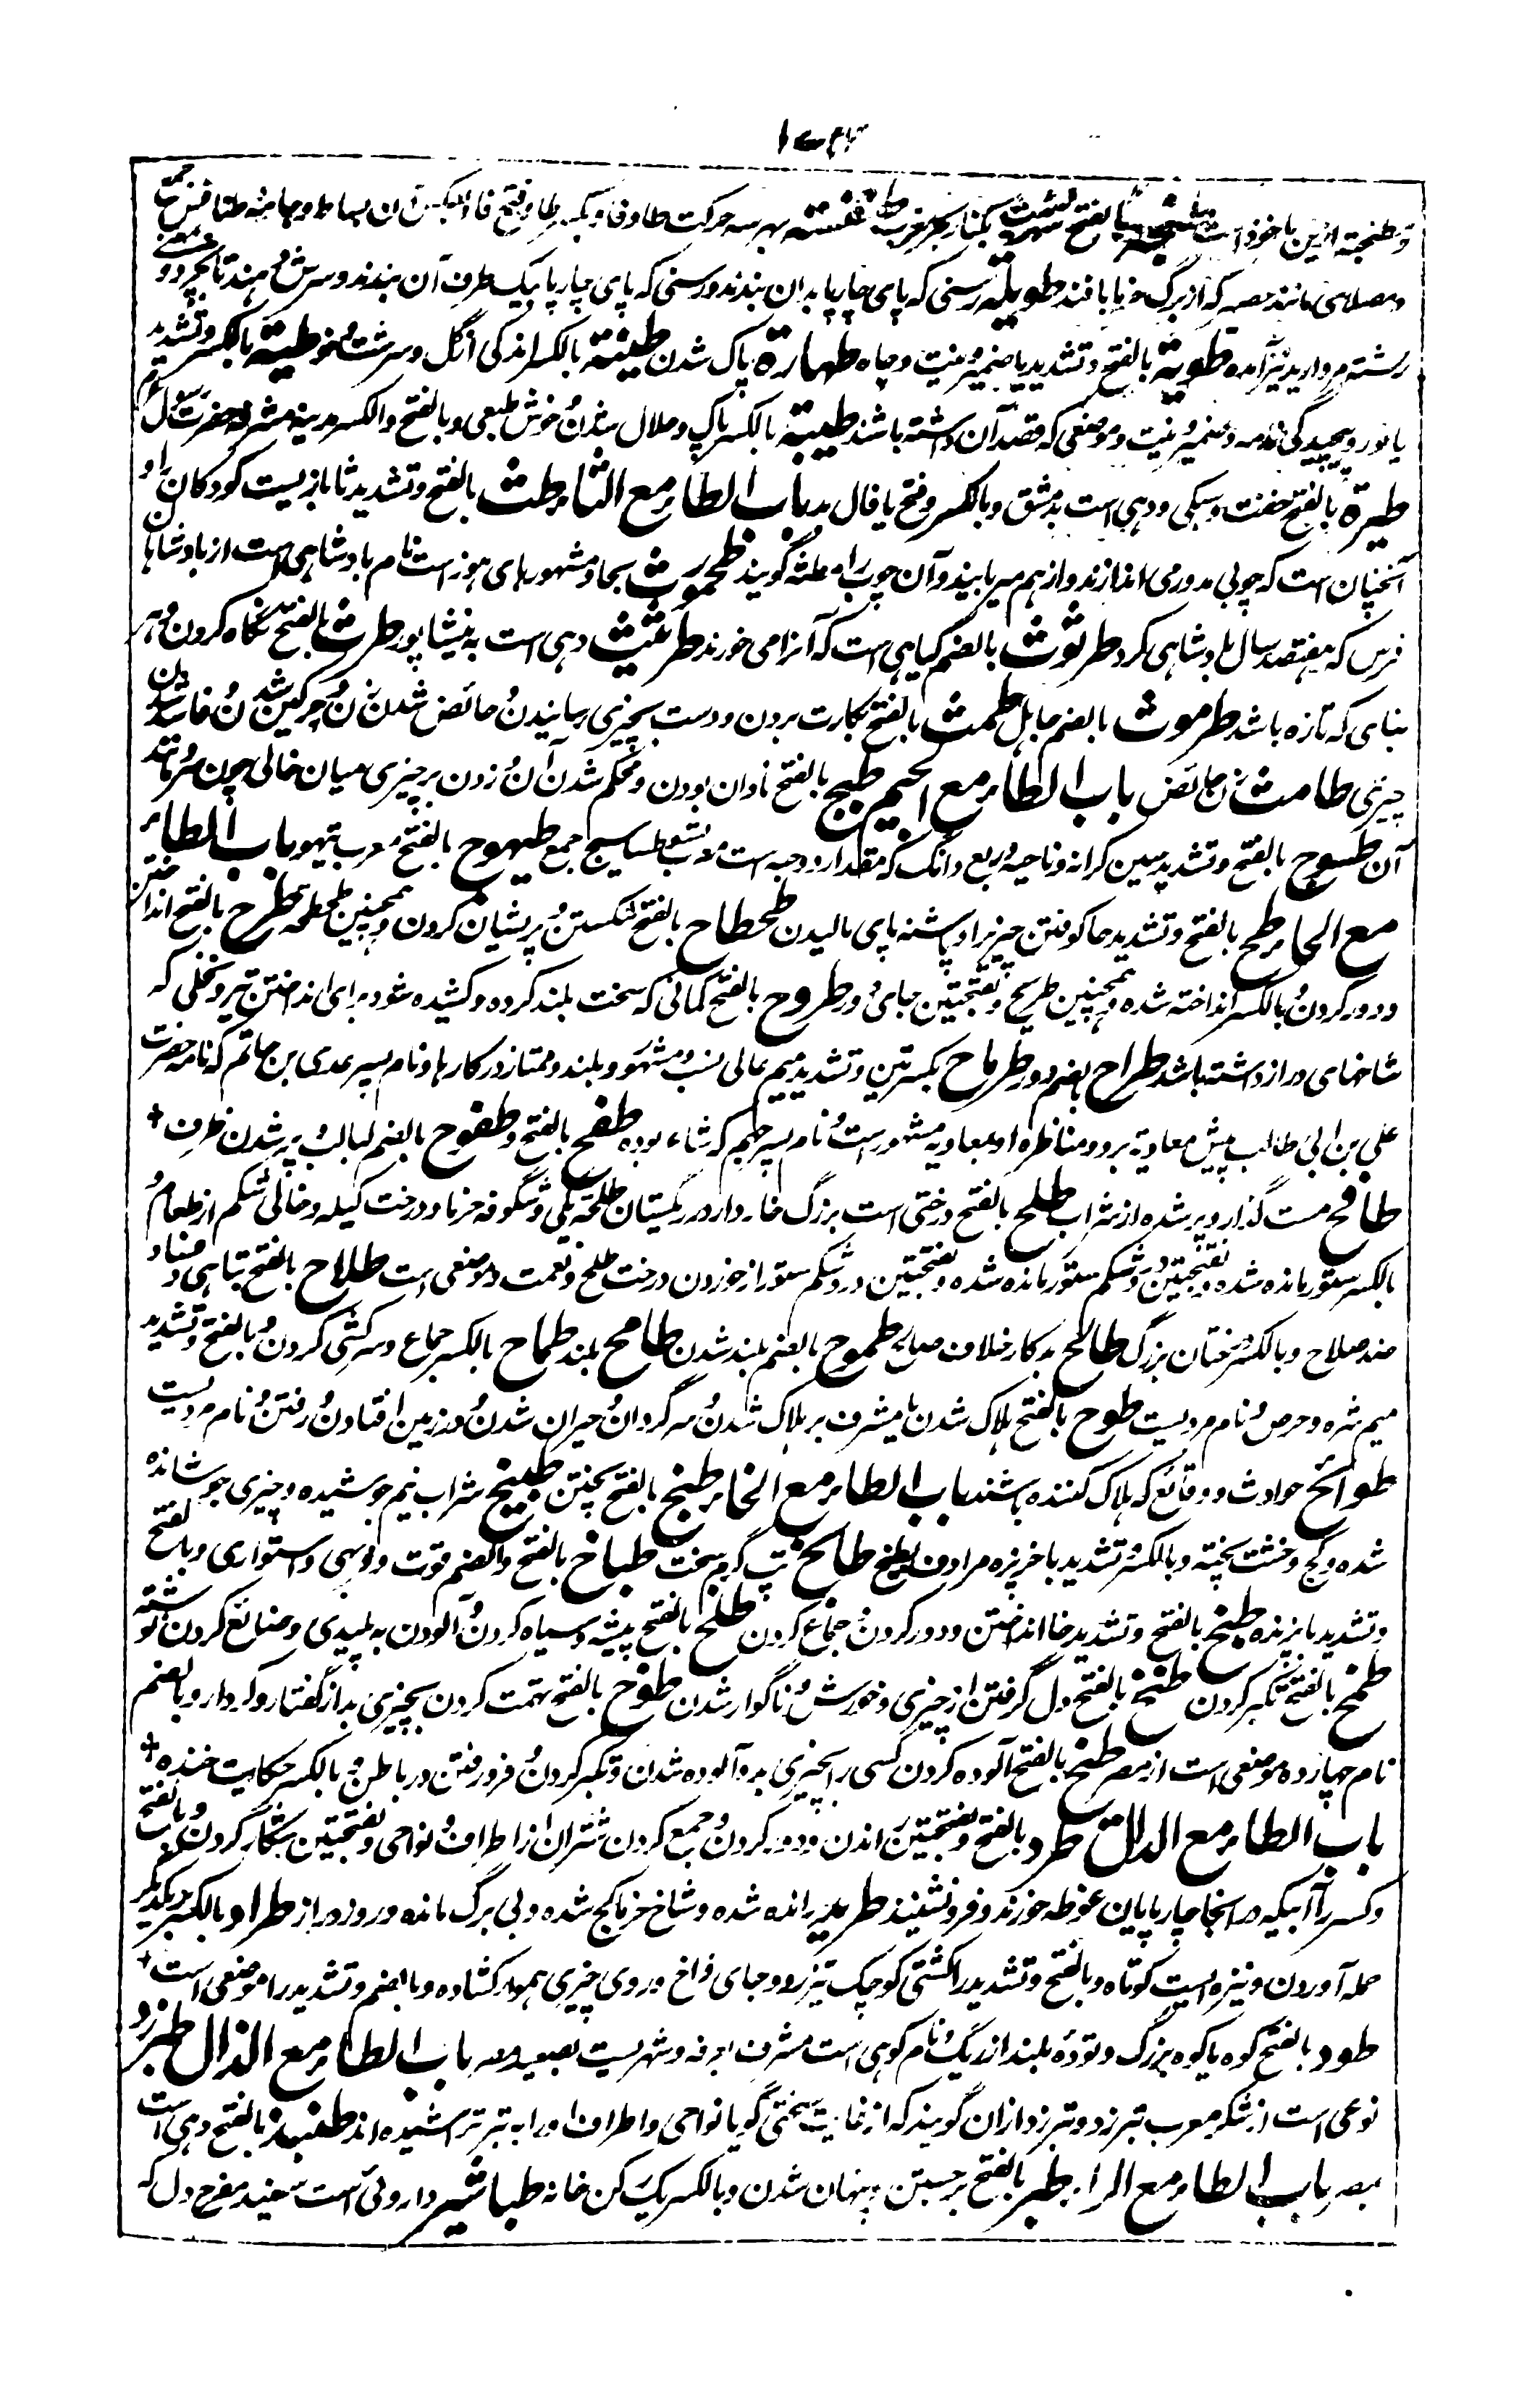 و طنجة ازین ماخوذ است طنجة بالفتح شهریست بکنار بحر مغرب طنفسة بهر سه حرکت طا و فا و بکسر طا و فتح فا و بالعکس آن بساط و جامه طنافس جمع
و مصلای مانند حصیر که از برگ خرما بافند طویلة رسنی که پای چارپا بدان بندند و رسنی که پای چارپا بیک طرف آن بندند و سرش دهند تا بچرد و بمعنی
رشته مروارید نیز آمده طویة بالفتح و تشدید یا ضمیر و نیت و چاه طهارة پاک شدن طینة بالکسر اندکی از گل و سرشت و خو طیة بالکسر و تشدید
یا نورد و پیچیدگی نامه و ضمیر و نیت و موضعی که قصد آن داشته باشند طیبة بالکسر پاک و حلال شدن و خوش طبعی و بالفتح و الکسر مدینه مشرفه حضرت رسول
طیرة بالفتح خفت و سبکی و دهی است بدمشق و بالکسر و فتح یا فال بد باب الطاء مع الثاء طث بالفتح و تشدید ثا بازیست کودکان را و
آنچنان است که چوبی مدور می اندازند و از هم میربایند و آن چوب را مطثه گویند طحمورث بحا و مشهور بهای هوز است نام بادشاهی است از بادشاهان
فرس که هفتصد سال بادشاهی کرد طرثوث بالضم گیاهی است که آنرا می خورند طرغثیث دهی است به نیشاپور طرث بالفتح نگاه کردن و هر
بنای که تازه باشد طرموث بالضم جاهل طمث بالفتح بکارت بردن و دست بچیزی رسانیدن و حائض شدن زن و چرکین شدن و فاسد شدن
چیزی طامث زن حائض باب الطاء مع الجیم طبج بالفتح نادان بودن و محکم شدن آن و زدن بر چیزی میان خالی چون سر و مانند
آن طسوج بالفتح و تشدید سین کرانه و ناحیه و ربع دانگ که مقدار دو حبه است معرب تسو طساسیج جمع طیهوج بالفتح معرب تیهو باب الطاء
مع الحاء طح بالفتح و تشدید حا کوفتن چیزیرا و پاشنه پای مالیدن طحطاح بالفتح شکستن و پریشان کردن و همچنین طحطحة طرح بالفتح انداختن
و دور کردن و بالکسر انداخته شده و همچنین طریح و بفتحتین جای دور طروح بالفتح کمانی که سخت بلند کرده و کشیده شود برای انداختن تیر و نخلی که
شاخهای دراز داشته باشد طراح بالضم دور طرماح بکسرتین و تشدید میم عالی نسب و مشهور و بلند و ممتاز در کارها و نام پسر عدی بن حاتم که نامه حضرت
علی بن ابی طالب پیش معاویه برد و مناظره او بمعاویه مشهور است و نام پسر جهم که شاعر بوده طفح بالفتح و طفوح بالضم لبالب و پر شدن ظرف +
طافح مست گذار و پر شده از شراب طلح بالفتح درختی است بزرگ خاردار در ریگستان طلحة یکی و شگوفه خرما و درخت کیله و خالی شکم از طعام و
بالکسر ستور مانده شده و بفتحتین درد شکم ستور مانده شده و بفتحتین درد شکم ستور از خوردن درخت طلح و نعمت و موضعی است طلاح بالفتح تباهی و فساد
ضد صلاح و بالکسر درختان بزرگ طالح بدکار خلاف صالح طموح بالضم بلند شدن طامح بلند طماح بالکسر جماع و سرکشی کردن و بالفتح و تشدید
میم شره و حرص و نام مردیست طوح بالفتح هلاک شدن یا مشرف بر هلاک شدن و سرگردان و حیران شدن و در زمین افتادن و رفتن و نام مردیست
طوائح حوادث و وقائع که هلاک کننده باشند باب الطاء مع الخاء طبخ بالفتح پختن طبیخ شراب نیم جوشیده و چیزی جوشانده
شده و گچ و خشت پخته و بالکسر و تشدید با خربزه مرادف بطیخ طابخ تپ گرم سخت طباخ بالفتح و الضم قوت و فربهی و استواری و بالفتح
و تشدید با پزنده طخ بالفتح و تشدید خا انداختن و دور کردن و جماع کردن طلخ بالفتح پیشه و سیاه کردن و آلودن به پلیدی و ضائع کردن نوشته
طمخ بالفتح تکبر کردن طنخ بالفتح دل گرفتن از چیزی و خورش و ناگوار شدن طوخ بالفتح تهمت کردن بچیزی بد از گفتار و کردار و بالضم
نام چهارده موضعی است از مصر طیخ بالفتح آلوده کردن کسی را بچیزی بد و آلوده شدن و تکبر کردن و فرو رفتن در باطل و بالکسر حکایت خنده +
باب الطاء مع الدال طرد بالفتح و بفتحتین راندن و دور کردن و جمع کردن شتران از اطراف و نواحی و بفتحتین شکار کردن و بالفتح
و کسر را آبیکه در اینجا چارپایان غوطه خورند و فرو نشینند طرید رانده شده و شاخ خرما کج شده و بی برگ مانده و روز دراز طراد بالکسر بر یکدیگر
حمله آوردن و نیزه ایست کوتاه و بالفتح و تشدید را کشتی کوچک تیزرو و جای فراخ و روی چیزی هموار کشاده و بالضم و تشدید را موضعی است +
طود بالفتح کوه یا کوه بزرگ و توده بلند از ریگ و نام کوهی است مشرف بر عرفه و شهریست بصعید مصر باب الطاء مع الذال طبرزد
نوعی است از شکر معرب تبرزد و تبرزد ازان گویند که از غایت سختی گویا نواحی و اطراف او را به تبر تراشیده اند طنبذ بالفتح دهی است
بمصر باب الطاء مع الراء طبر بالفتح برجستن و پنهان شدن و بالکسر یک کن خانه طباشیر داروئی است سفید مفرح دل که